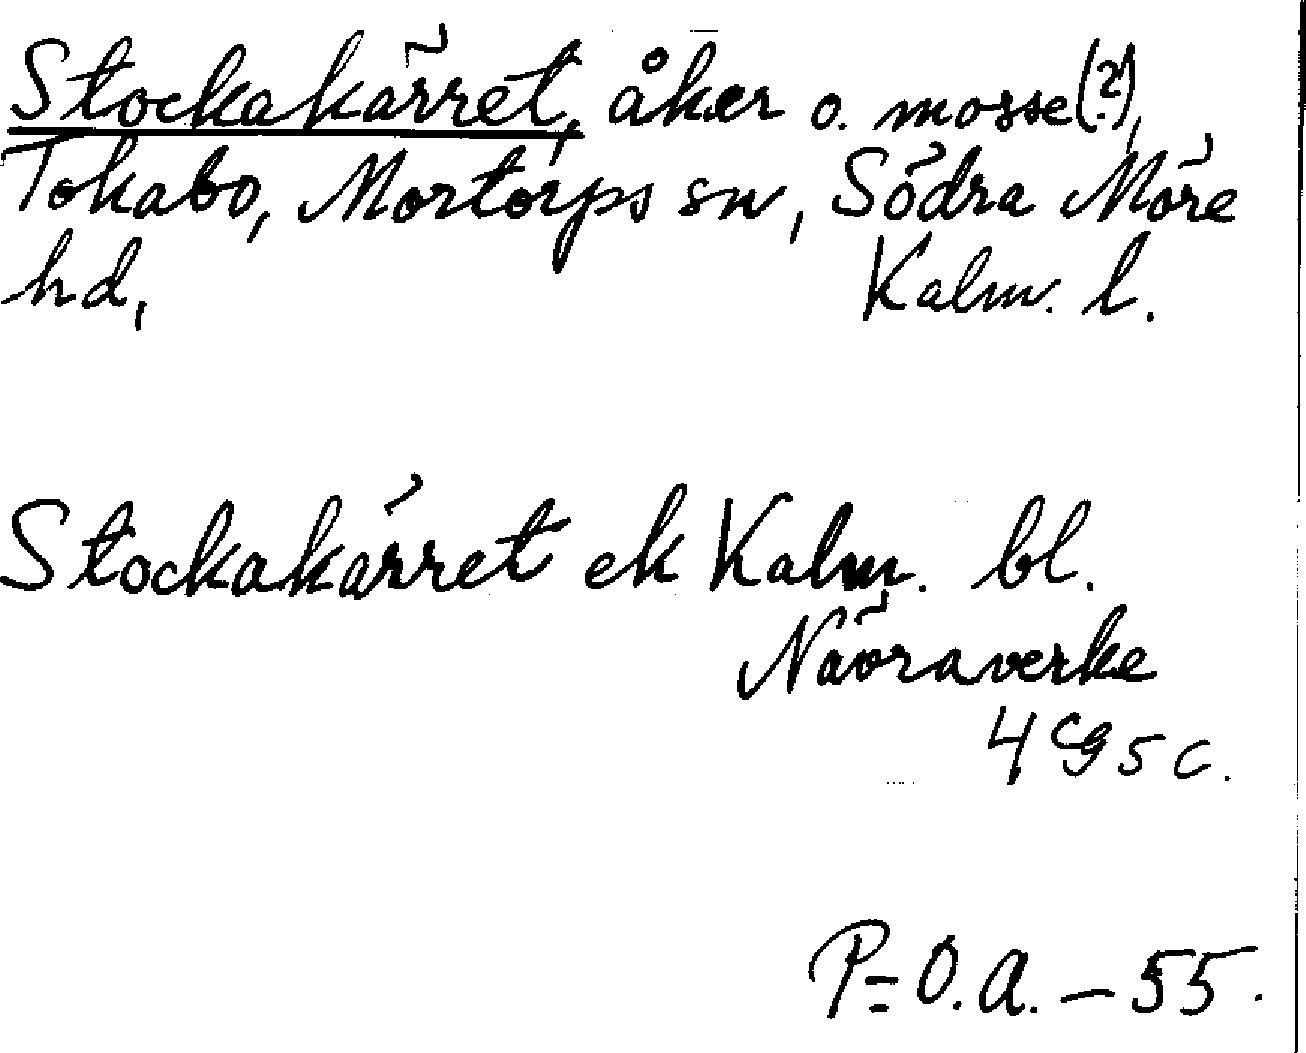 Stockakärret, åker o. mosse(?),
Tokabo, Mortorps sn, Södra Möre
hd, Kalm. l.
Stockakärret ek Kalm. bl.
Nävraverke
4 G 5 c.
P=O.A. — 55.